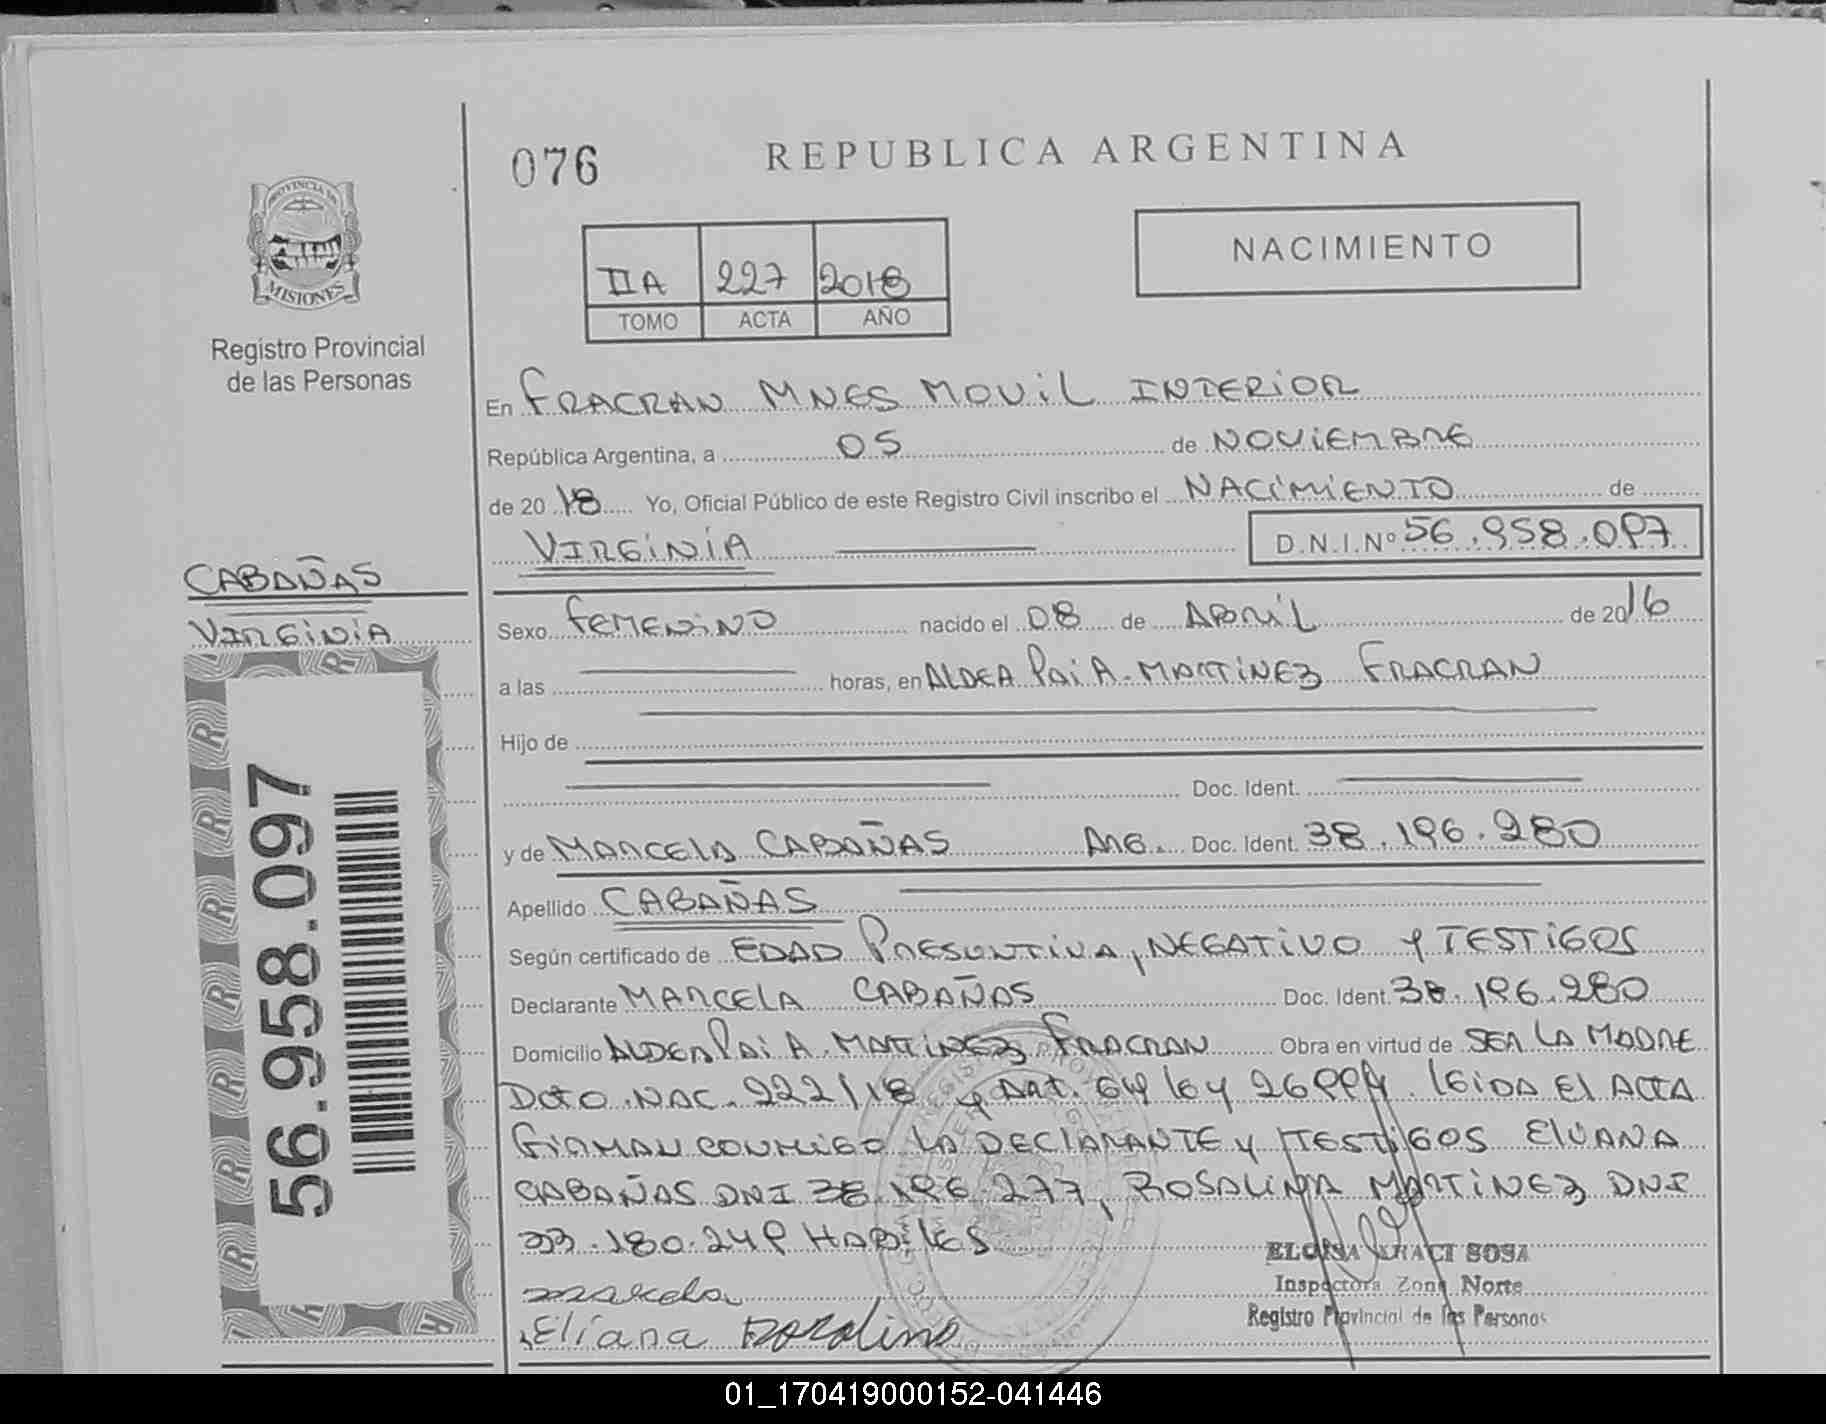 076
REPUBLICA ARGENTINA
PROVINCIA DE
MISIONES
Registro Provincial
de las Personas
NACIMIENTO
IIA 227 2018
TOMO ACTA AÑO
En FRACRAN MNES MOVIL INTERIOR
República Argentina, a 05 de NOVIEMBRE
de 2018 Yo, Oficial Público de este Registro Civil inscribo el NACIMIENTO de
VIRGINIA D.N.I.Nº 56.958.097
CABAÑAS
VIRGINIA
Sexo FEMENINO nacido el 08 de ABRIL de 2016
a las horas, en ALDEA PAI A. MARTINEZ FRACRAN
Hijo de
Doc. Ident.
y de MARCELA CABAÑAS ARG. Doc. Ident. 38.196.280
Apellido CABAÑAS
Según certificado de EDAD PRESUNTIVA, NEGATIVO Y TESTIGOS
Declarante MARCELA CABAÑAS Doc. Ident. 38.196.280
Domicilio ALDEA PAI A. MARTINEZ FRACRAN Obra en virtud de SER LA MADRE
DCTO. NAC. 222/18 y ART. 64 ley 26994. leida el ACTA
FIRMAN CONMIGO LA DECLARANTE y TESTIGOS ELIANA
CABAÑAS DNI 38.196.277, ROSALINA MARTINEZ DNI
33.180.249 HABILES
marcela
Eliana Rosalina
ELOISA ARACI SOSA
Inspectora Zona Norte
Registro Provincial de las Personas
56.958.097
01_170419000152-041446